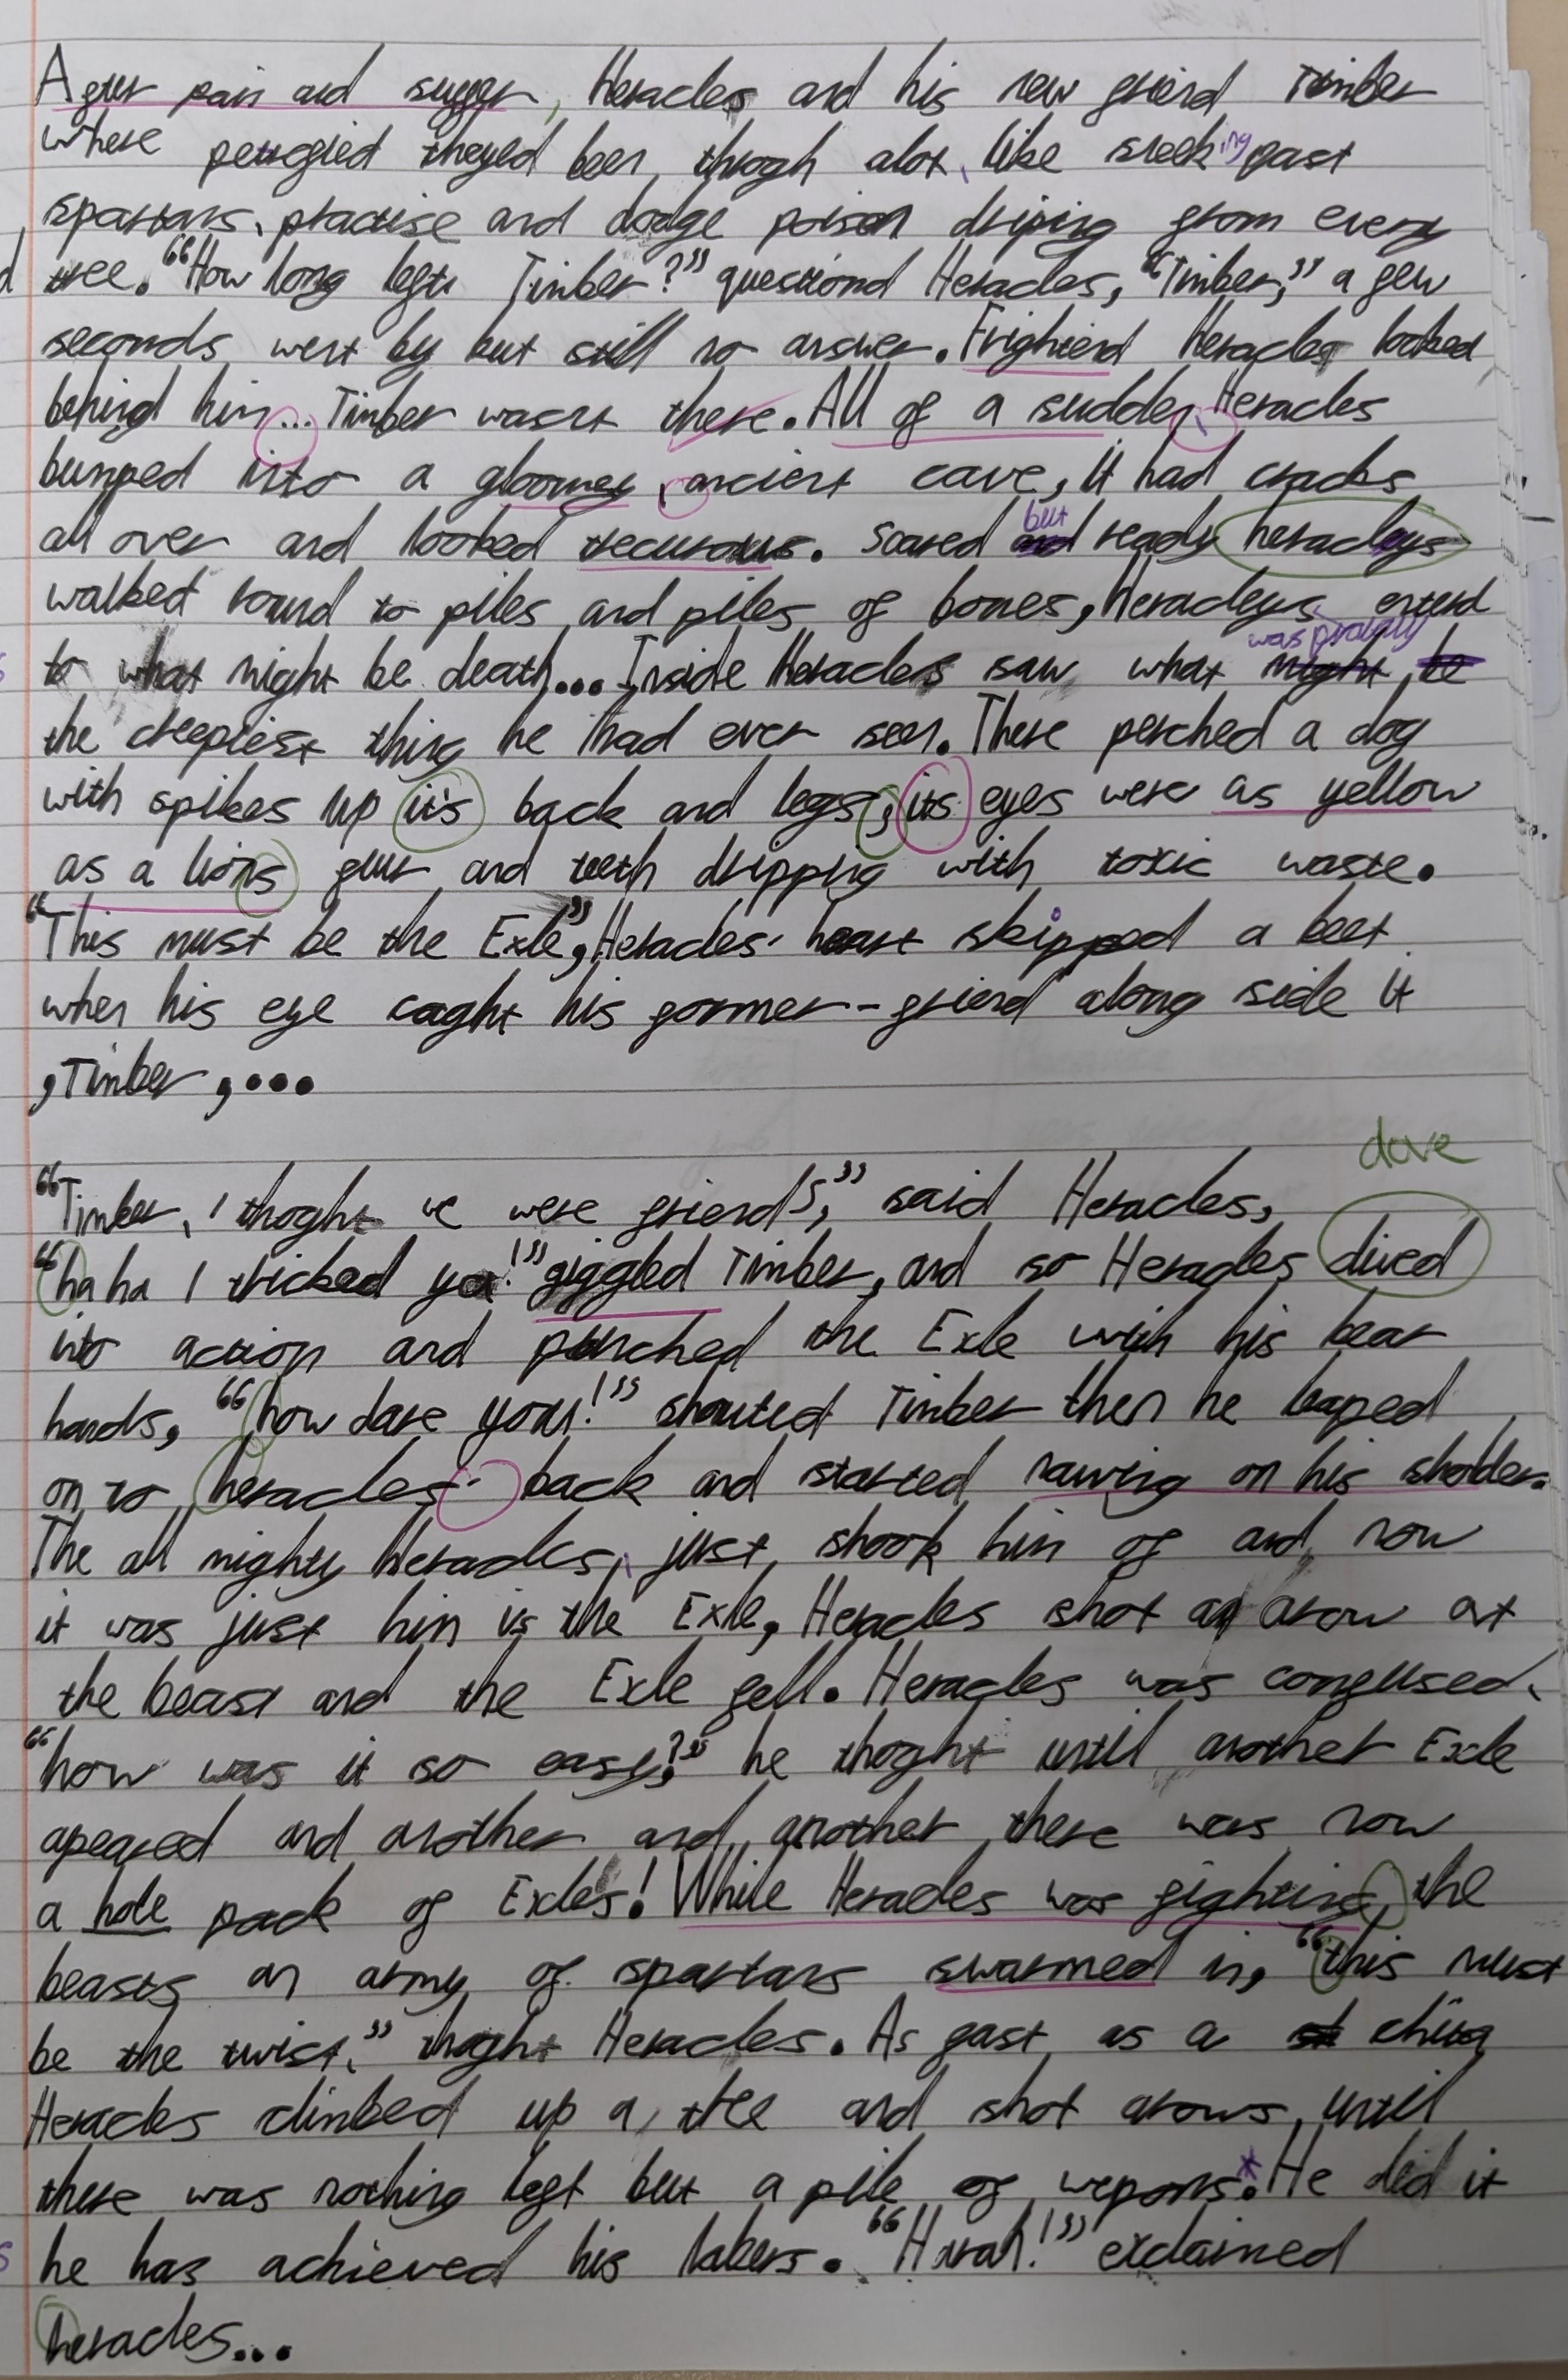 After pain and suffer, Heracles and his new friend Timber
where petrogied theyed been through alot, like sneeking past
spartans, practise and dodge poison driping from every
tree. "How long left Timber?" questiond Heracles, "Timber," a few
seconds went by but still no answer. Frightend Heracles looked
behind him... Timber wasnt there. All of a sudden, Heracles
bumped into a gloomey, ancient cave, it had cracks
all over and looked trecurous. Scared but ready heracleys
walked round to piles and piles of bones, Heracleys, enterd
was probally
to what might be death... Inside Heracles saw what might be
the creepiest thing he had ever seen. There perched a dog
with spikes up it's back and legs, its eyes were as yellow
as a lions fur and teeth dripping with toxic waste.
"This must be the Exle", Heracles' heart skipped a beet
when his eye caght his former-friend along side it
, Timber,...
dove
"Timber, I thoght we were friends," said Heracles,
"ha ha I tricked you!" giggled Timber, and so Heracles dived
into action and punched the Exle with his bear
hands, "how dare you!" shouted Timber then he leaped
on to heracles' back and started nawing on his sholder.
The all mighty Heracles, just shook him of and now
it was just him vs the Exle, Heracles shot an arow at
the beast and the Exle fell. Heracles was confused,
"how was it so easy?" he thoght until another Exle
apeared and another and another there was now
a hole pack of Exles! While Heracles was fighting, the
beasts an army of spartans swarmed in, "this must
be the twist," thoght Heracles. As fast as a chita
Heracles climbed up a tree and shot arows until
there was nothing left but a pile of wepons.* He did it
he has achieved his labers. "Hurah!" exclaimed
heracles...